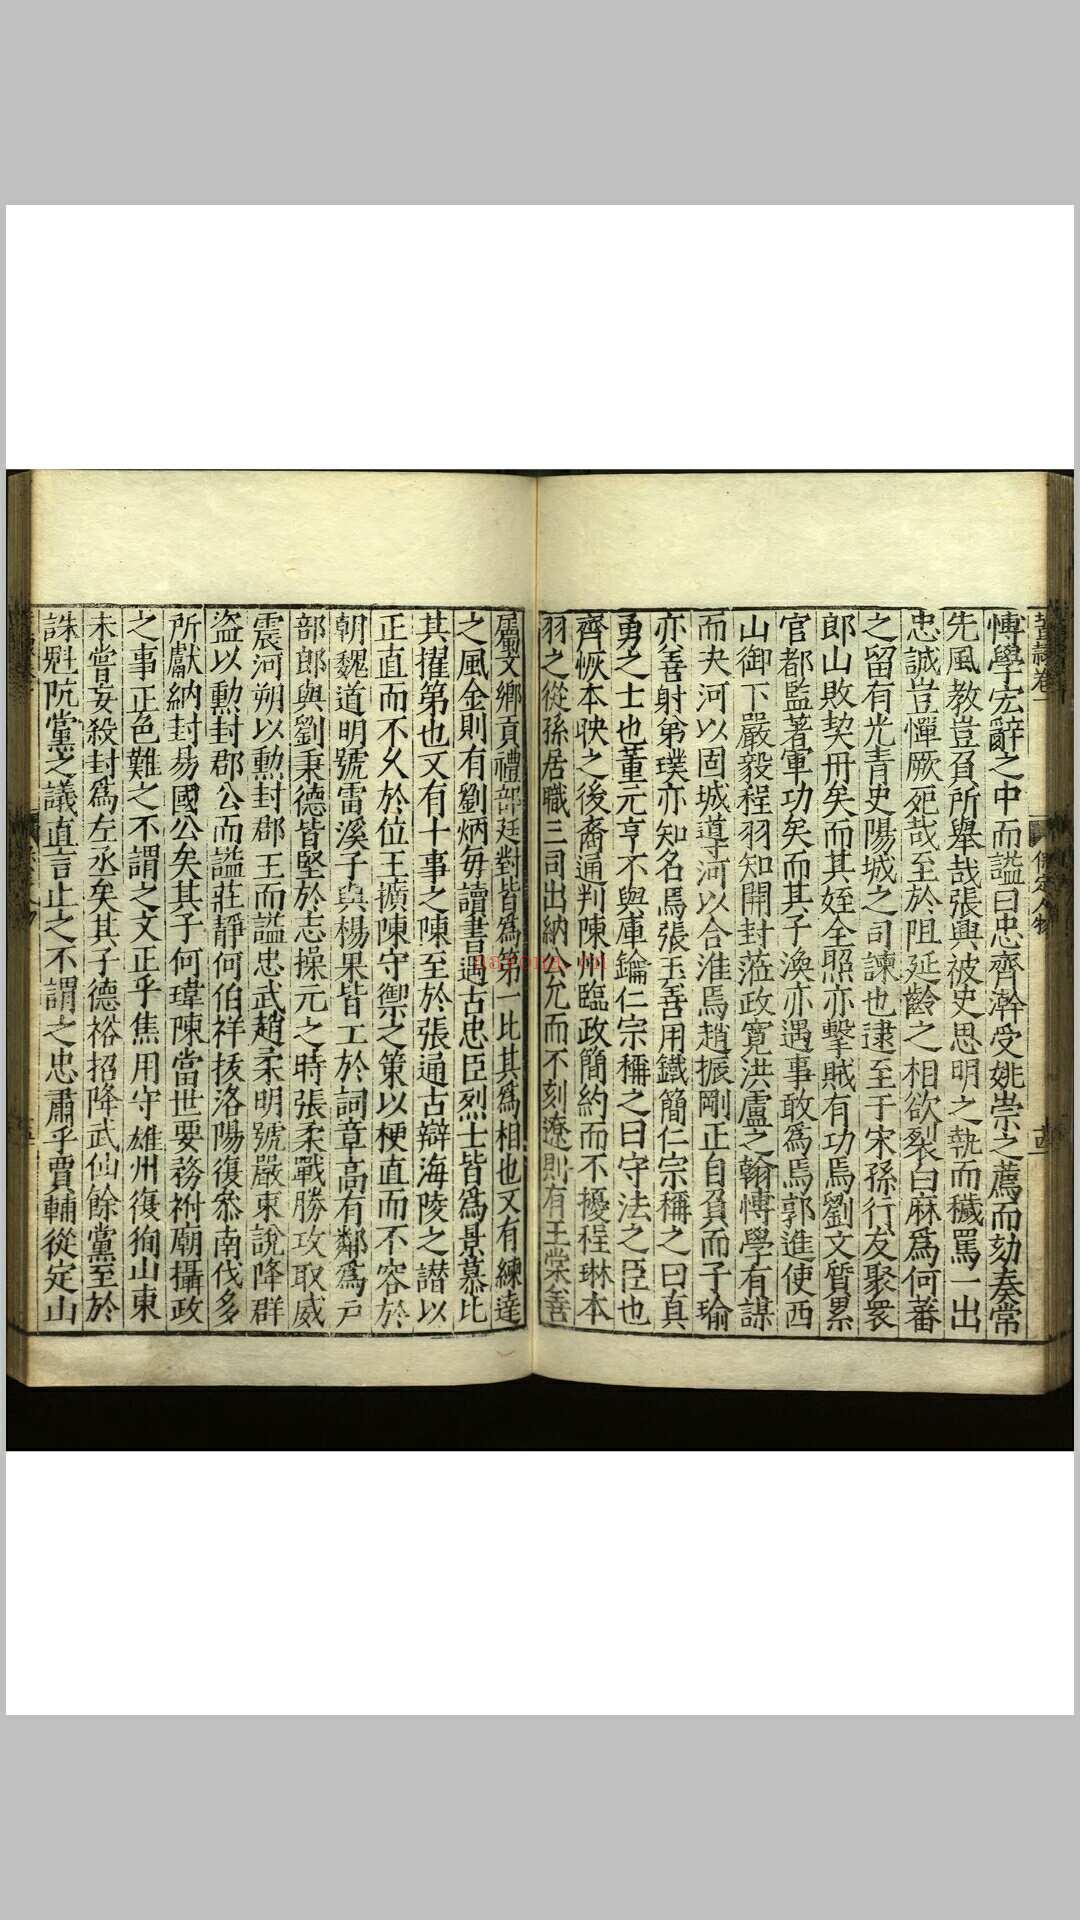 保定人物
博學宏辭之中而謚曰忠齊澣受姚崇之薦而劾奏常
先風教豈負所舉哉張興被史思明之執而穢罵一出
忠誠豈憚厥死哉至於阻延齡之相欲裂白麻為何蕃
之留有光青史陽城之司諫也逮至于宋孫行友聚衆
郎山敗契丹矣而其姪全照亦擊賊有功焉劉文質累
官都監著軍功矣而其子渙亦遇事敢為焉郭進使西
山御下嚴毅程羽知開封蒞政寬洪盧之翰博學有謀
而夫河以固城導河以合淮焉趙振剛正自負而子瑜
亦善射弟璞亦知名焉張玉善用鐵簡仁宗稱之曰真
勇之士也董元亨不與庫鑰仁宗稱之曰守法之臣也
齊恢本映之後裔通判陳州臨政簡約而不擾程琳本
羽之從孫居職三司出納公允而不刻遼則有王棠善
屬文鄉貢禮部廷對皆為第一比其為相也又有練達
之風金則有劉炳每讀書遇古忠臣烈士皆為景慕比
其擢第也又有十事之陳至於張通古辯海陵之譖以
正直而不久於位王擴陳守禦之策以梗直而不容於
朝魏道明號雷溪子與楊果皆工於詞章高有鄰為戶
部郎與劉秉德皆堅於志操元之時張柔戰勝攻取威
震河朔以勳封郡王而謚忠武趙柔明號嚴東說降群
盜以勳封郡公而謚莊靜何伯祥拔洛陽復叅南伐多
所獻納封易國公矣其子何瑋陳當世要務祔廟攝政
之事正色難之不謂之文正乎焦用守雄州復狥山東
未嘗妄殺封為左丞矣其子德裕招降武仙餘黨至於
誅魁阬黨之議直言止之不謂之忠肅乎賈輔從定山